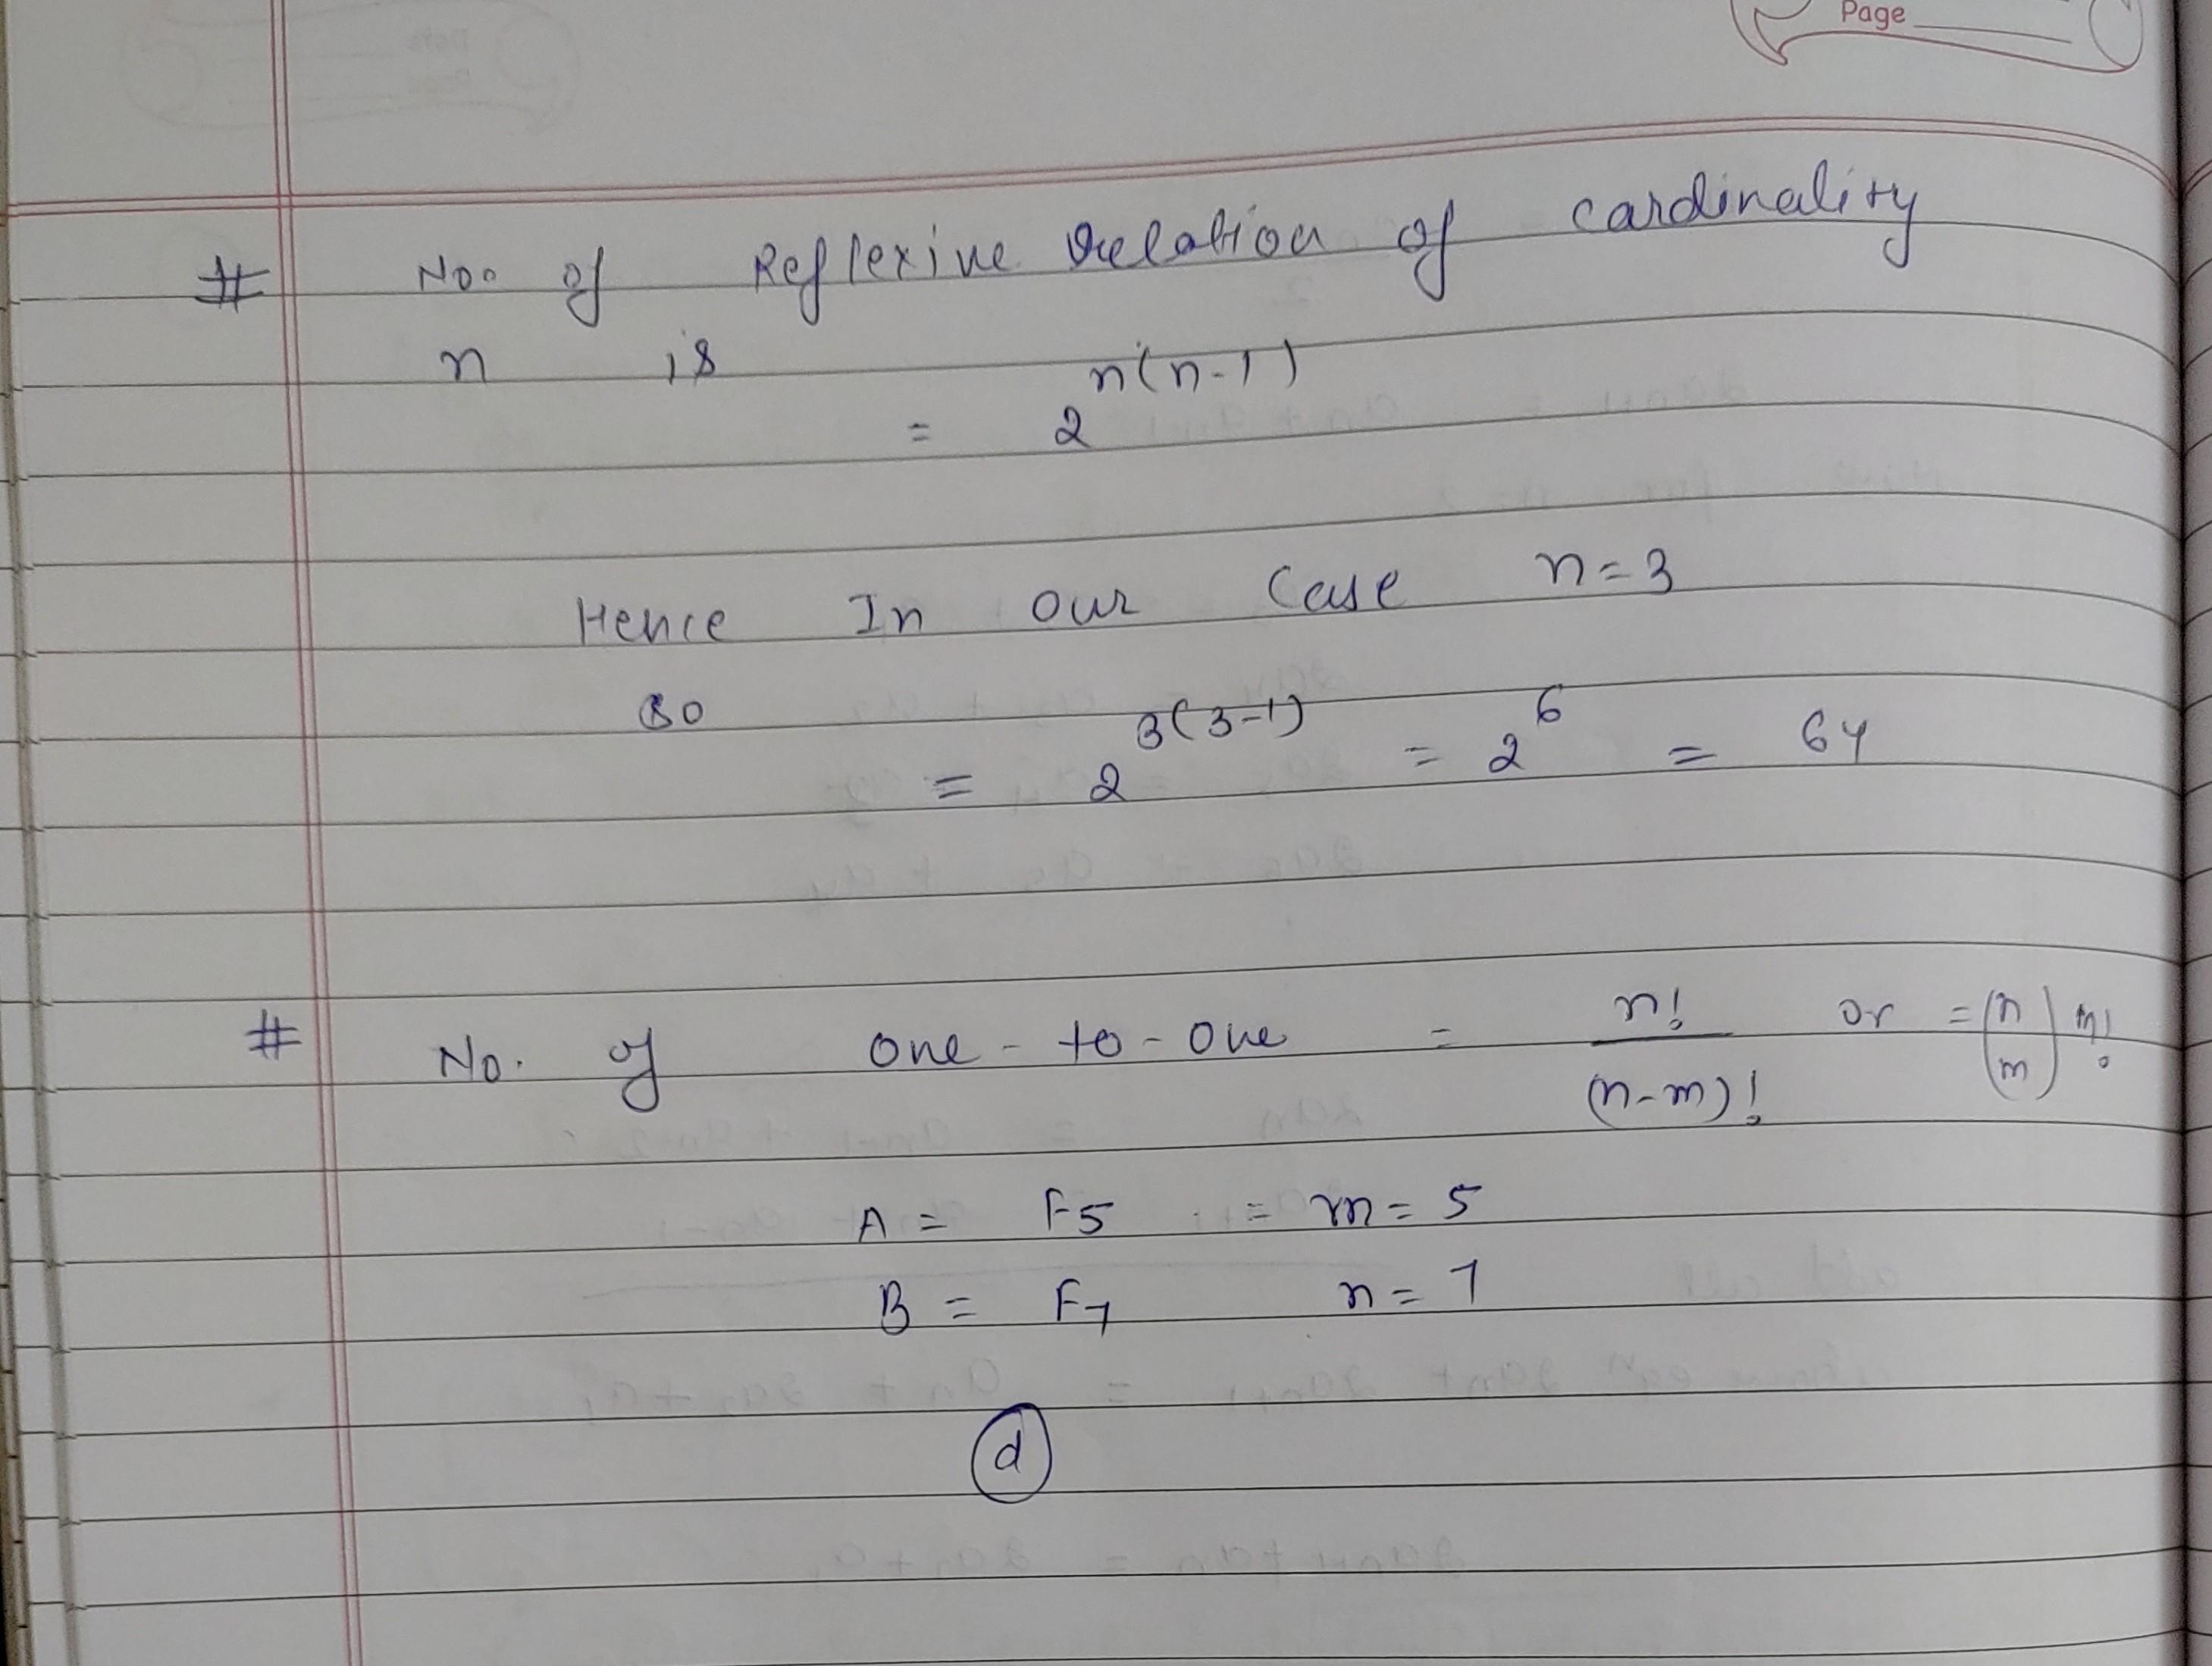 Page
# No. of Reflexive relation of cardinality
n is
= 2^{n(n-1)}
Hence In our Case n=3
so
= 2^{3(3-1)} = 2^6 = 64
# No. of one-to-one = \frac{n!}{(n-m)!} or = \binom{n}{m} m!
A = F5 = m = 5
B = F7 n = 7
d